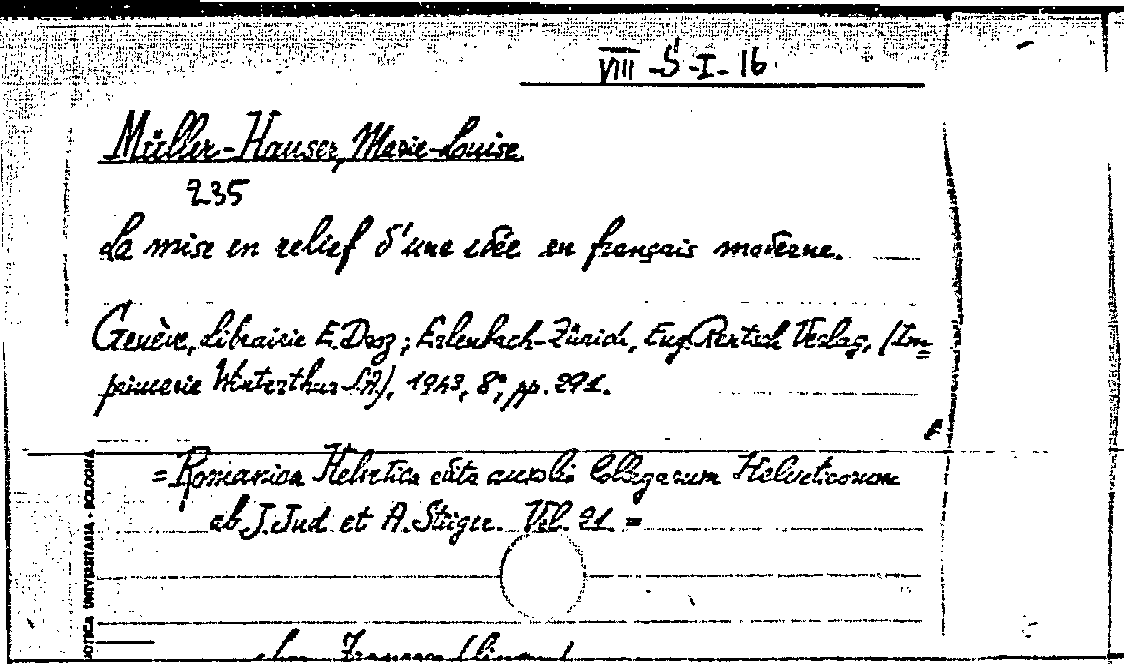 VIII - S - I - 16.
Müller-Hauser, Marie-Louise.
235
La mise en relief d'une idée en français moderne.
Genève, Librairie E. Droz; Erlenbach-Zürich, Eug. Rentsch Verlag, (Im=
primerie Winterthur S.A), 1943, 8°, pp. 291.
= Romanica Helvetica edita auxilio Collegarum Helveticorum
ab J. Jud et A. Steiger. Vol. 21. =
OTECA UNIVERSITARIA - BOLOGNA